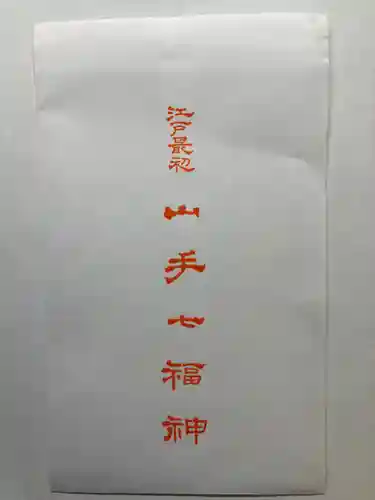 江戸最初
山手七福神